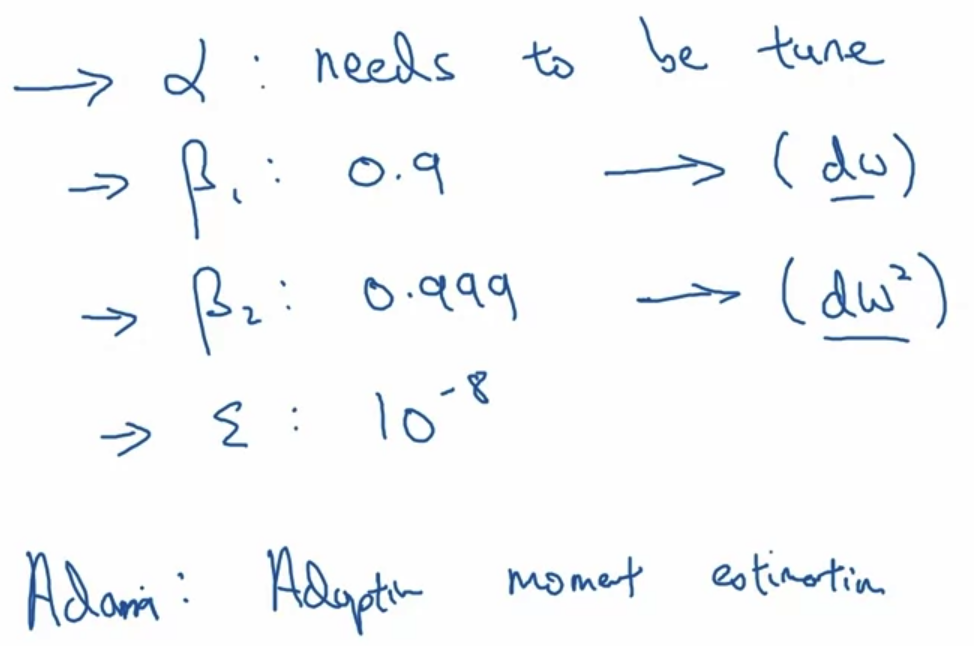 → α : needs to be tune
→ β₁ : 0.9 → (dw)
→ β₂ : 0.999 → (dw²)
→ ε : 10⁻⁸
Adam : Adaptin moment estimatin